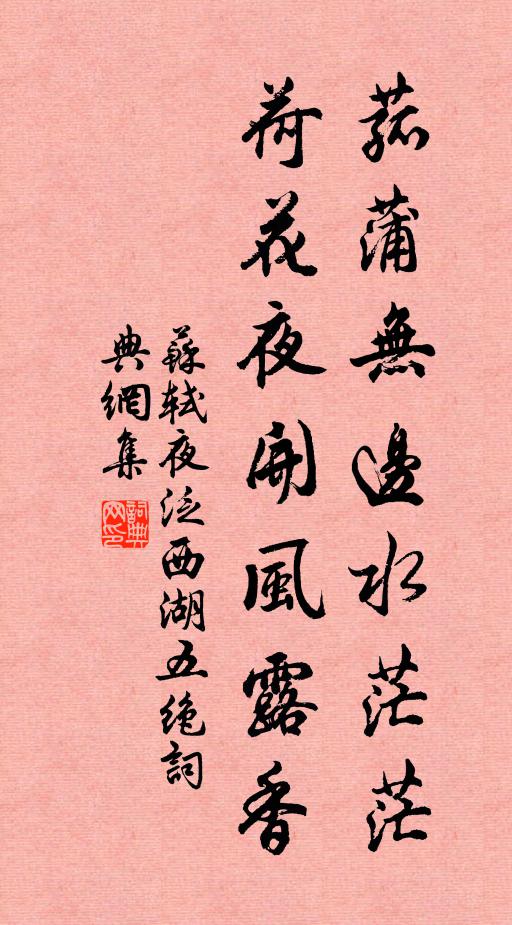 菰蒲無邊水茫茫
荷花夜開風露香
蘇軾夜泛西湖五絶詞
典網集
詞典
网印